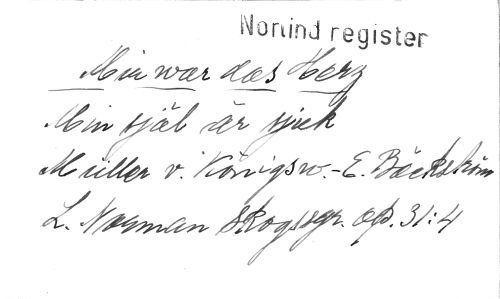 Norlind register
Mir war das Herz
Min själ är sjuk
Müller v. Königsw. - E. Bäckström
L. Norman Skogssgr. op. 31:4